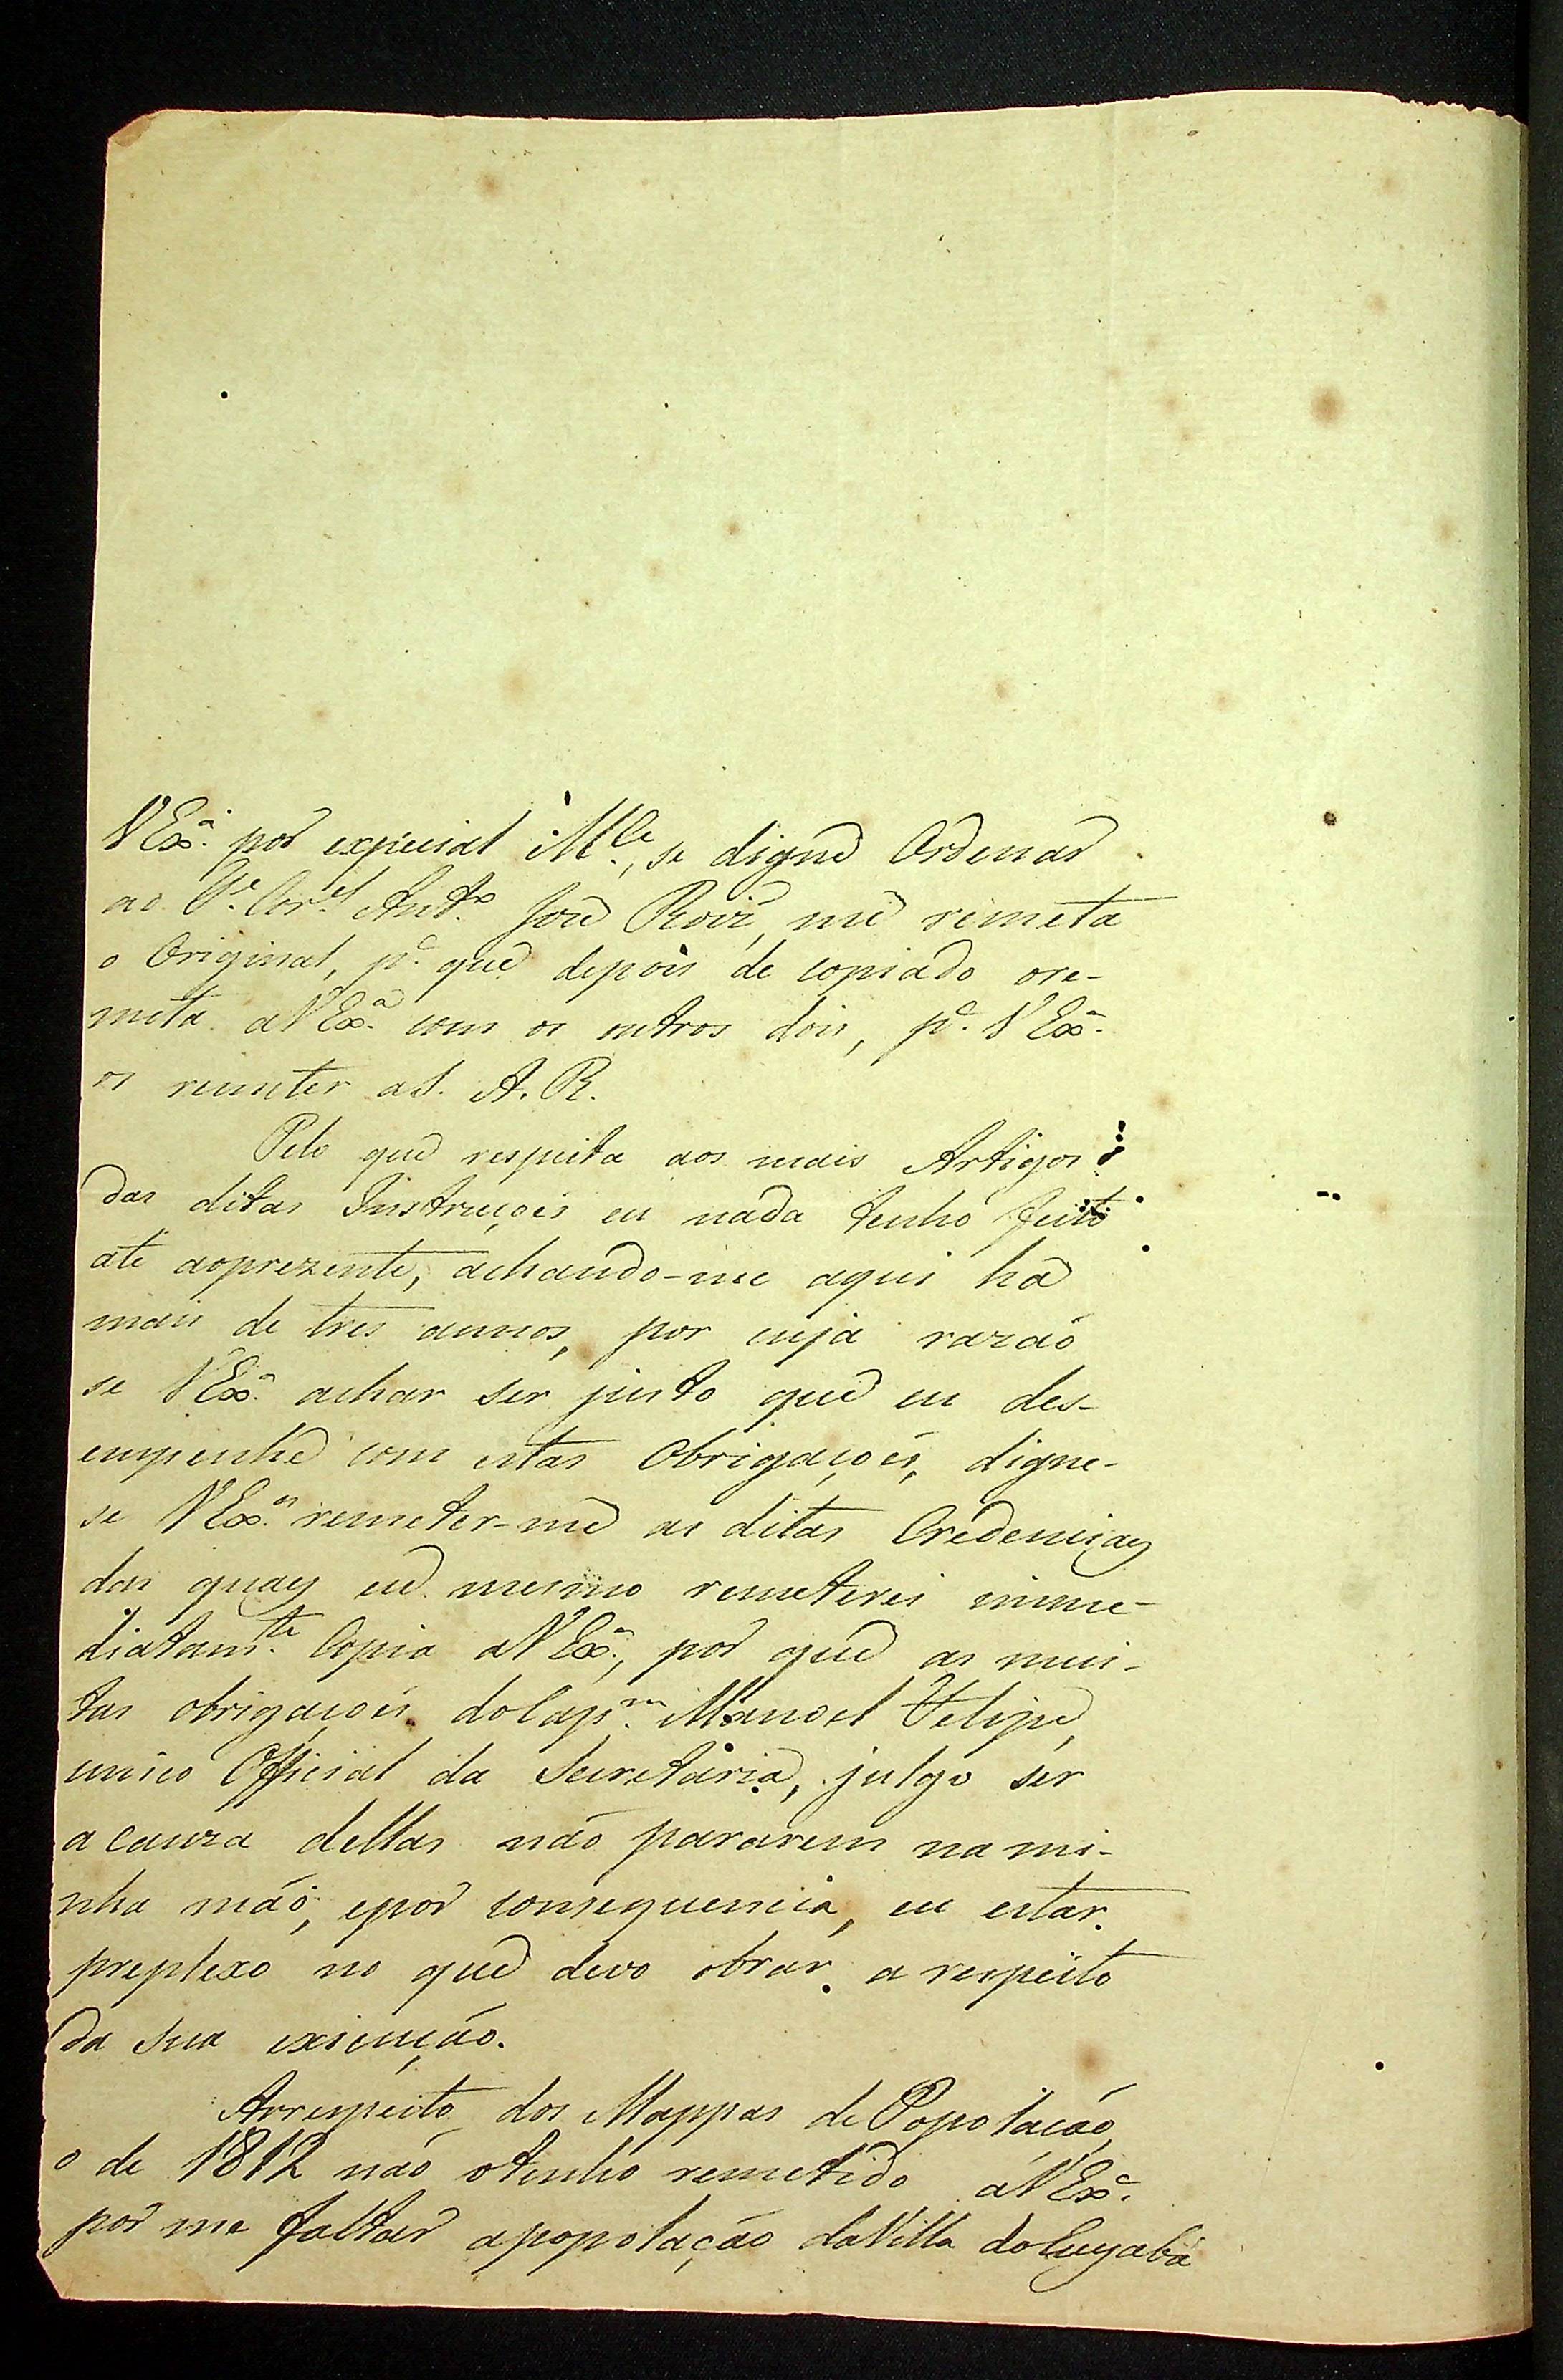 VExª. por expecial Mce., se digne Ordenar
ao Te. Corel. Antº. José Roiz, me remeta
o Original, pª. que depois de copiado ore-
meta aVExª. com os outros dois, pª. VExª.
os remeter aS. A. R.
Pelo que respeita aos mais Artigos
das ditas Instruçoés eu nada tenho feito
até aoprezente, achando-me aqui ha
mais de tres annos, por cuja razaó
se VExª. achar ser justo que eu des-
empenhe com estas Obrigaçoés, digne-
se VExª. remeter-me as ditas Credenciaes
das quaes eu mesmo remeterei imme-
diatamte. Copia aVExª., por que as mui-
tas obrigaçoés doCapm. Manoel Felipe,
unico Official da Secretaria, julgo ser
a cauza dellas naó pararem na mi-
nha maó, epor consequencia, eu estar
preplexo no que devo obrar a respeito
da sua execuçáo.
Arrespeito dos Mappas de Popolacáo,
o de 1812 naó otenho remetido áVExª.
por me faltar apopolaçáo daVilla doCuyabá